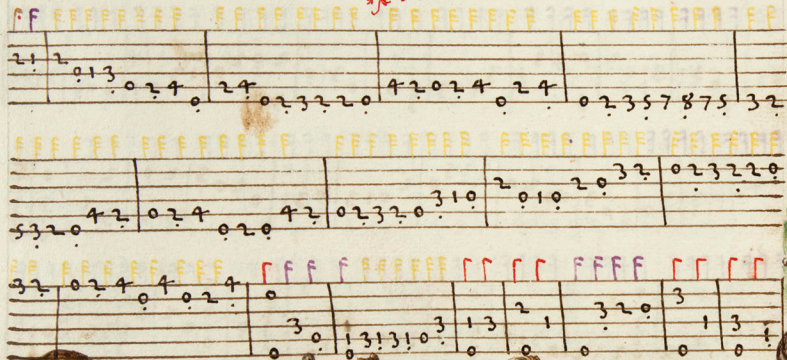 2 1 | 2 0 1 3 0 2 4 0 | 2 4 0 2 3 2 2 0 | 4 2 0 2 4 0 2 4 | 0 2 3 5 7 8 7 5 | 3 2
5 3 2 0 4 2 | 0 2 4 0 2 0 4 2 | 0 2 3 2 0 3 1 0 | 2 0 1 0 2 0 3 2 | 0 2 3 2 2 0
3 2 | 0 2 4 0 4 0 2 4 | 0 0 3 0 | 1 0 3 1 3 1 0 3 | 1 0 3 | 2 0 1 | 0 3 2 0 | 3 0 1 | 3 0 1